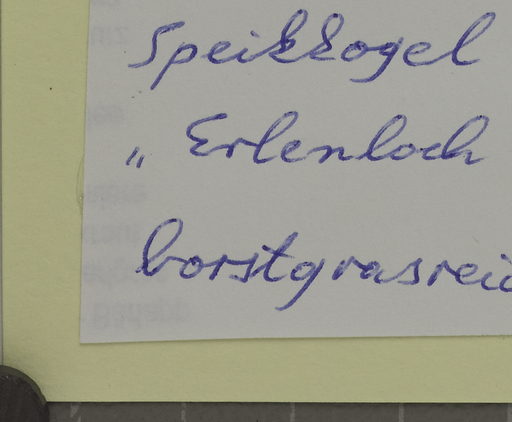 Speikkogel
„ Erlenloch
borstgrasreic